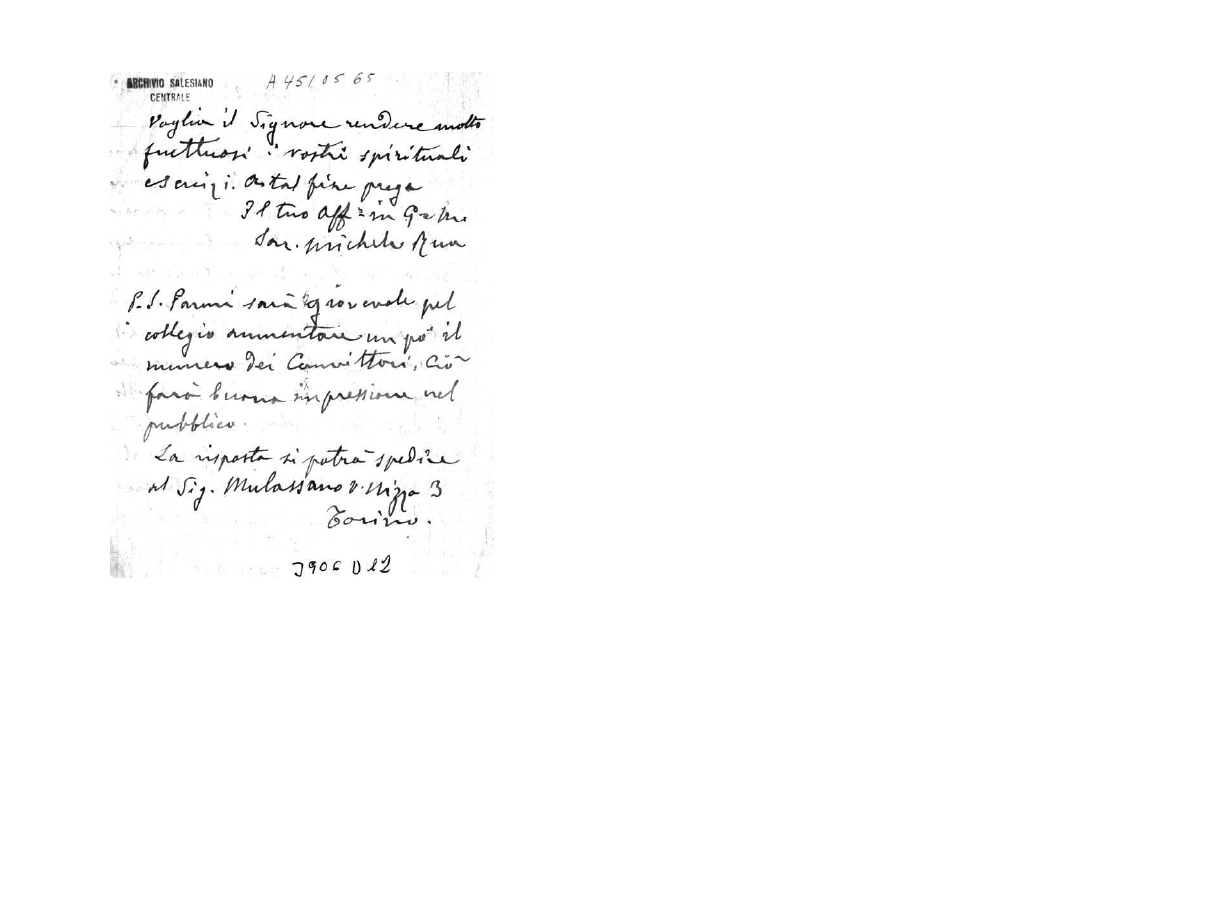 ARCHIVIO SALESIANO
CENTRALE
A 4510565
Voglia il Signore rendere molto
fruttuosi i vostri spirituali
esercizi. A tal fine prega
Il tuo aff in G e M
Sac. Michele Rua
P.S. Parmi sarà giovevole pel
collegio aumentare un po' il
numero dei Convittori, Ciò
farà buona impressione nel
pubblico.
La risposta si potrà spedire
al Sig. Mulassano v. Nizza 3
Torino.
3906 D12